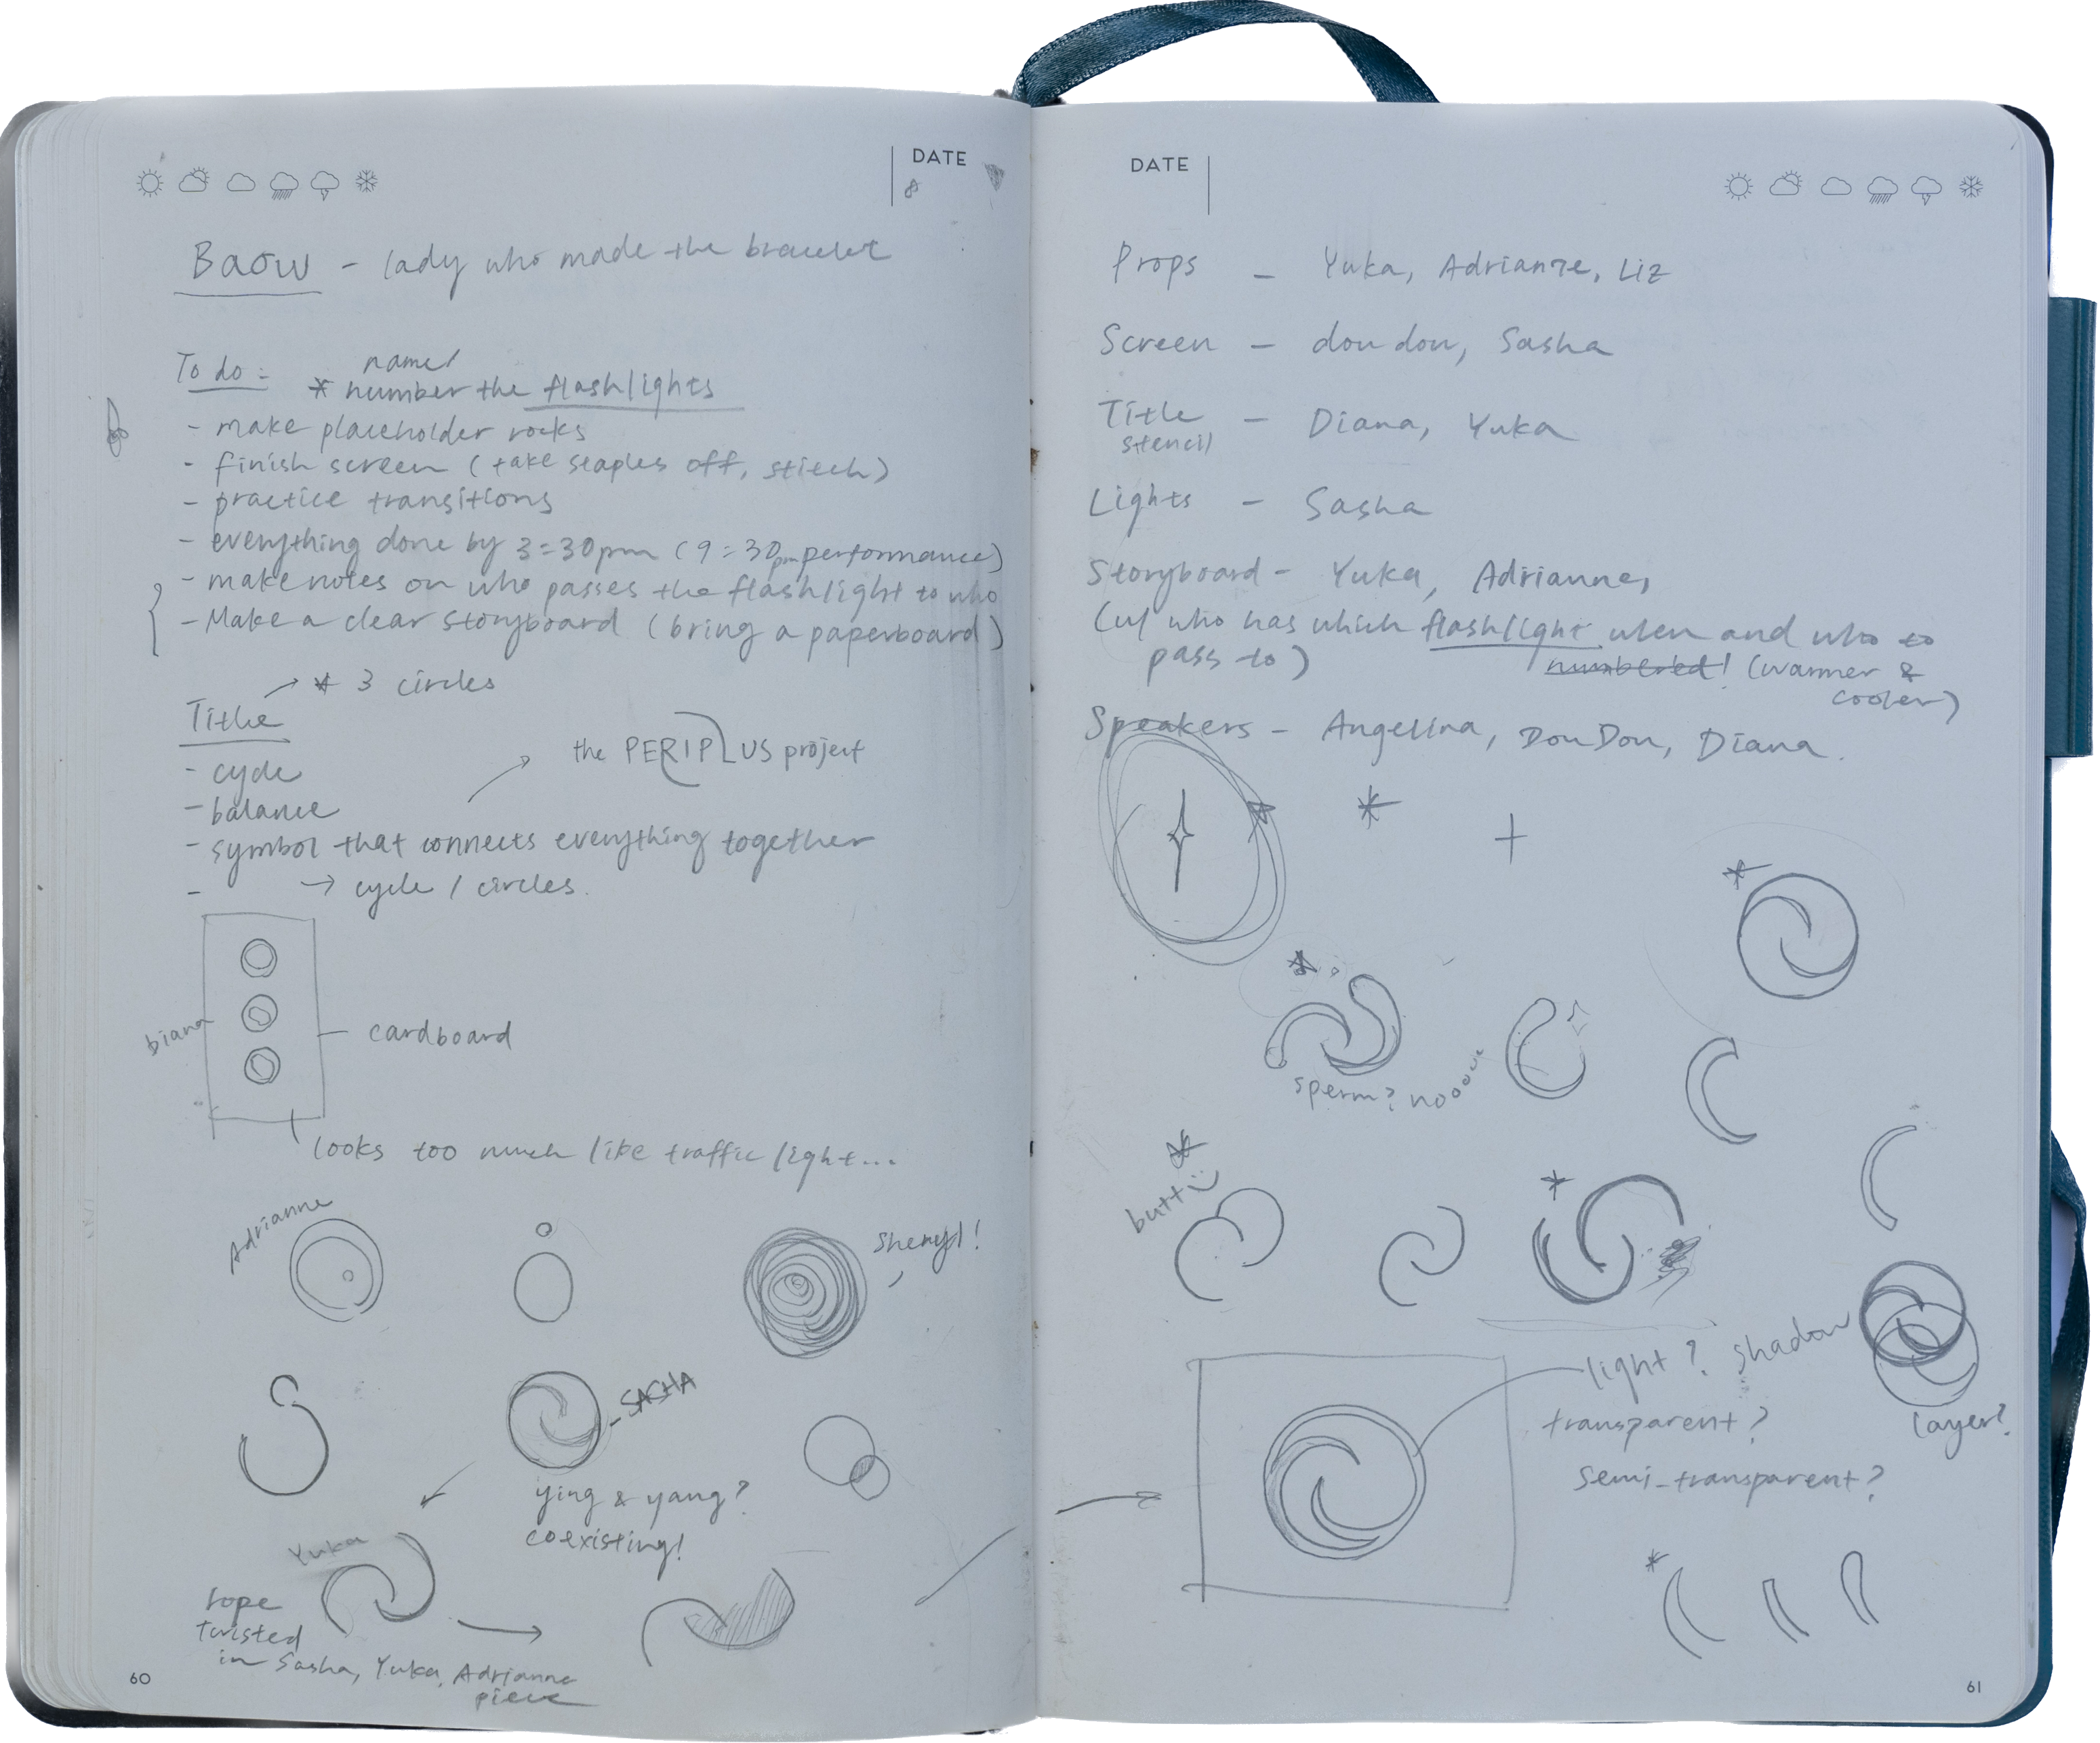 DATE
8
Baow - lady who made the bracelet
To do:
name/
* number the flashlights
- make placeholder rocks
- finish screen (take staples off, stitch)
- practice transitions
- everything done by 3:30pm (9:30pm performance)
- make notes on who passes the flashlight to who
- Make a clear storyboard (bring a paperboard)
* 3 circles
Title
the PERIPLUS project
- cycle
- balance
- symbol that connects everything together
- → cycle / circles.
cardboard
looks too much like traffic light...
Adrianne
Sheryl!
- SASHA
ying & yang?
coexisting!
Yuka
rope
twisted
in Sasha, Yuka, Adrianne
piece
60
DATE
Props - Yuka, Adrianne, Liz
Screen - doudou, Sasha
Title - Diana, Yuka
stencil
Lights - Sasha
Storyboard - Yuka, Adrianne,
(w/ who has which flashlight when and who to
pass to)
numbered! (warmer &
cooler)
Speakers - Angelina, DouDou, Diana.
sperm? nooooo
butt :)
light? shadow
transparent?
semi-transparent?
layer?
61